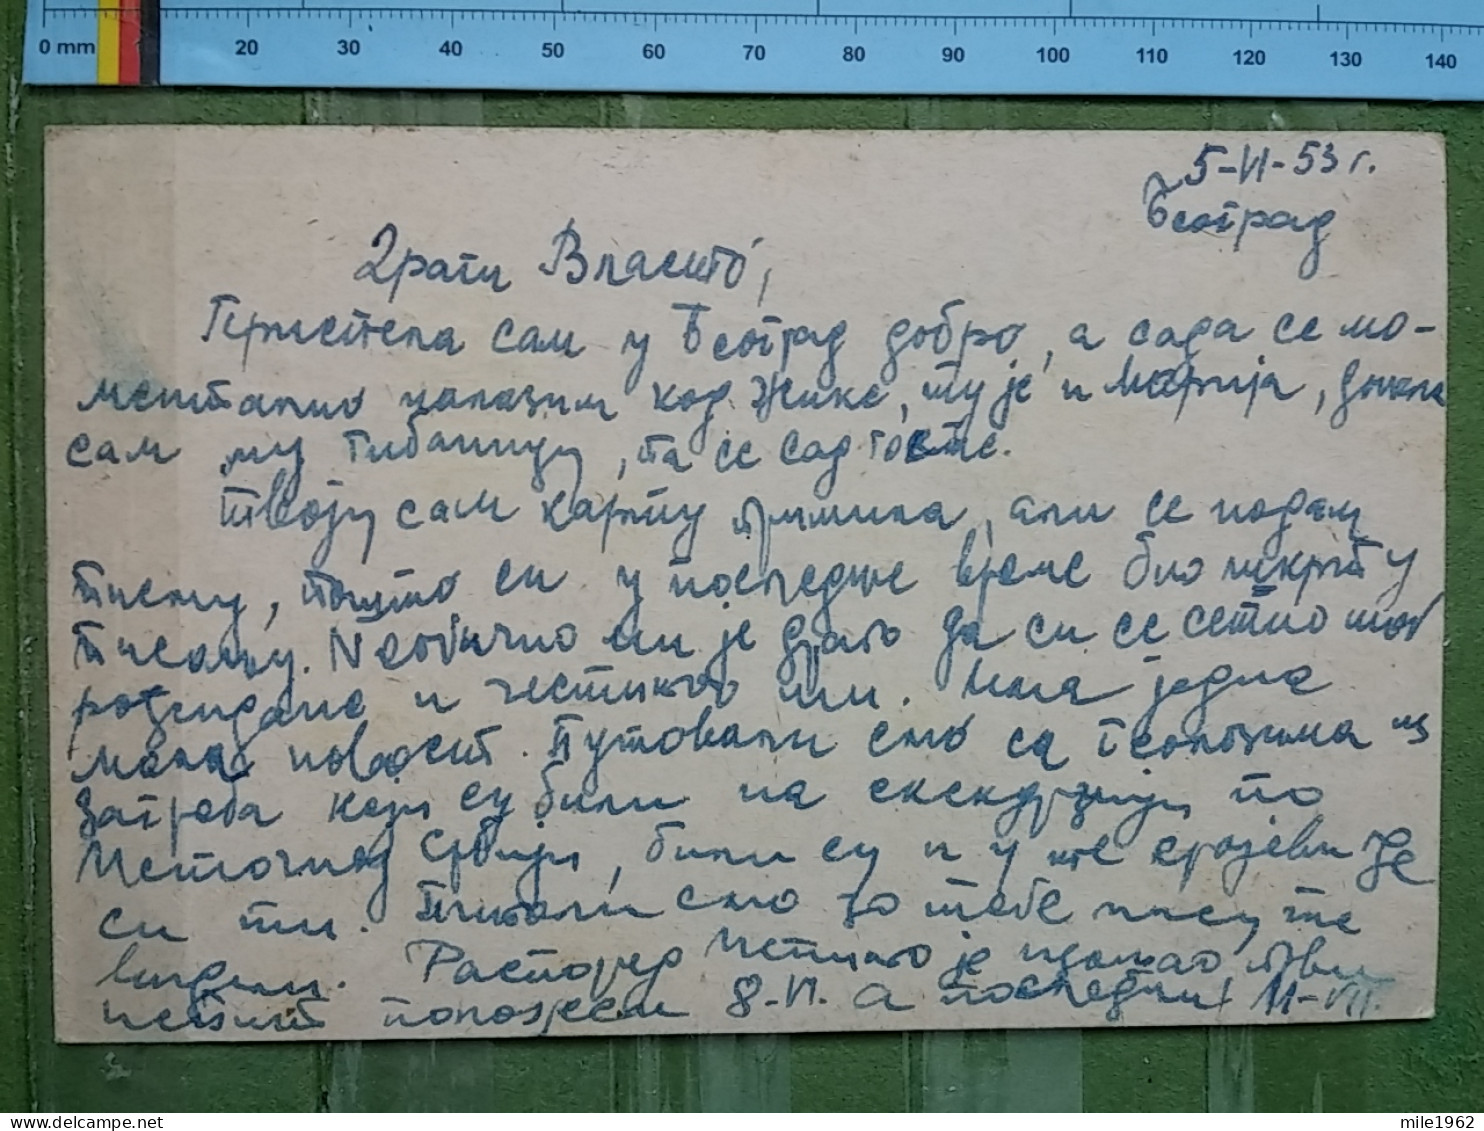 0 mm 20 30 40 50 60 70 80 90 100 110 120 130 140
5-VI-53 г.
Београд
Драги Власто,
Приспела сам у Београд добро, а сада се мо-
ментално налазим код Жике, ту је и Марија, донела
сам му гибаницу, па се сад гости.
Твоју сам карту примила, али се надам
писму, пошто си у последње време био шкрт у
писању. Необично ми је драго да си се сетио мог
рођендана и честитао ми. Има једна
мала новост. Путовали смо са геолозима из
Загреба који су били на екскурзији по
Источној Србији, били су и у те крајеве где
си ти. Питали смо за тебе нису те
видели. Распоред испита је изашао, први
испит полажем 8-VI. а последњи 11-VII.
mile1962